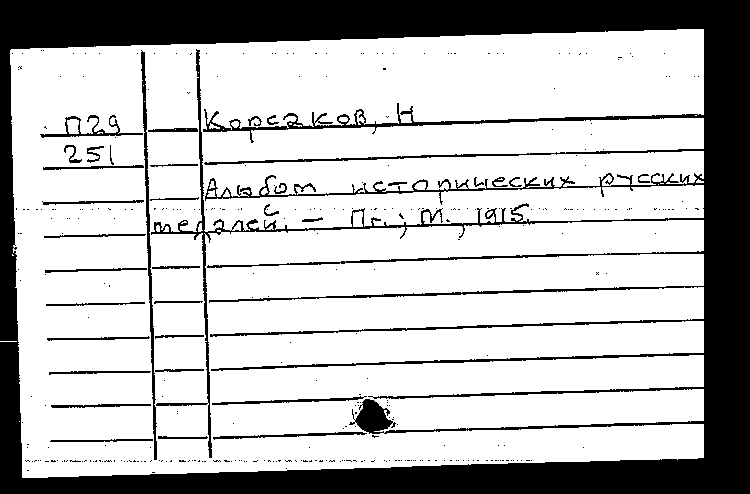 П29 Корсаков, Н
251
Альбом исторических русских
медалей. – Пг.; М., 1915.